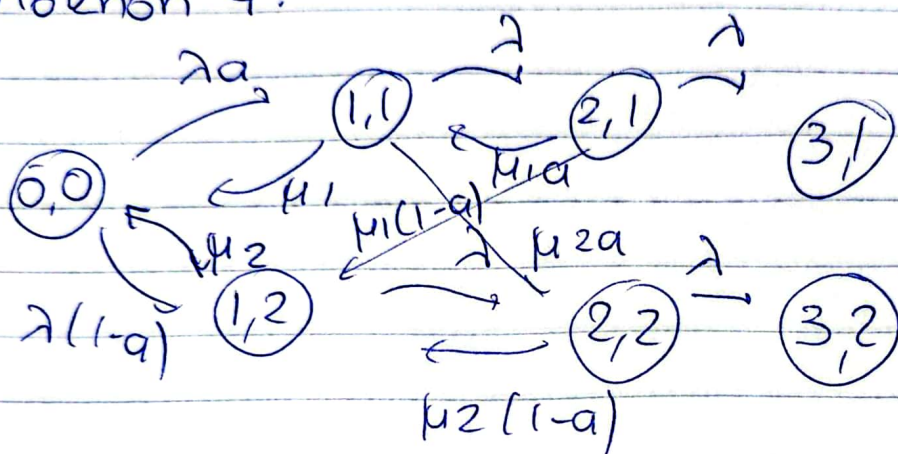 λa
λ
λ
1,1
2,1
3,1
0,0
μ1
μ1a
μ1(1-a)
μ2
λ
μ2a
λ
λ(1-a)
1,2
2,2
3,2
μ2(1-a)